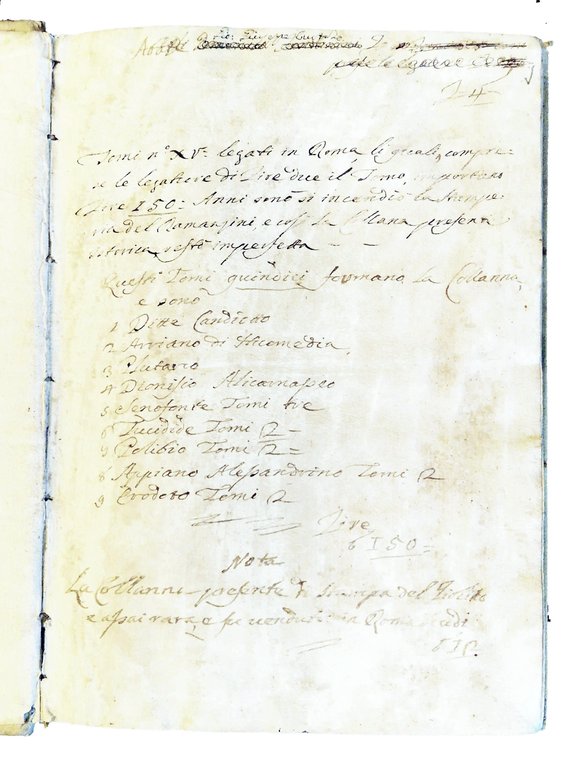 Tomi n.º XV. legati in Roma, li quali, compre-
se le legature di Lire due il Tomo, importano
Lire 150 = Anni sono si incendiò la Stampe-
ria del Ramanzini, e così la Collana presente
istorica restò imperfetta - -
Questi Tomi quindici formano la Collanna,
e sono
1 Ditte Candiotto
2 Arriano di Nicomedia
3 Plutarco
4 Dionisio Alicarnasseo
5 Senofonte Tomi tre
6 Tucidide Tomi 2 =
7 Polibio Tomi 2 =
8 Appiano Alessandrino Tomi 2
9 Erodoto Tomi 2
Lire
150 =
Nota
La Collanna presente di stampa del Giolito
è assai rara, e si vende in Roma scudi